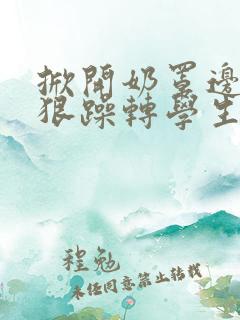 掀開奶罩邊
狠躁轉學生
程勉
未经同意禁止转载